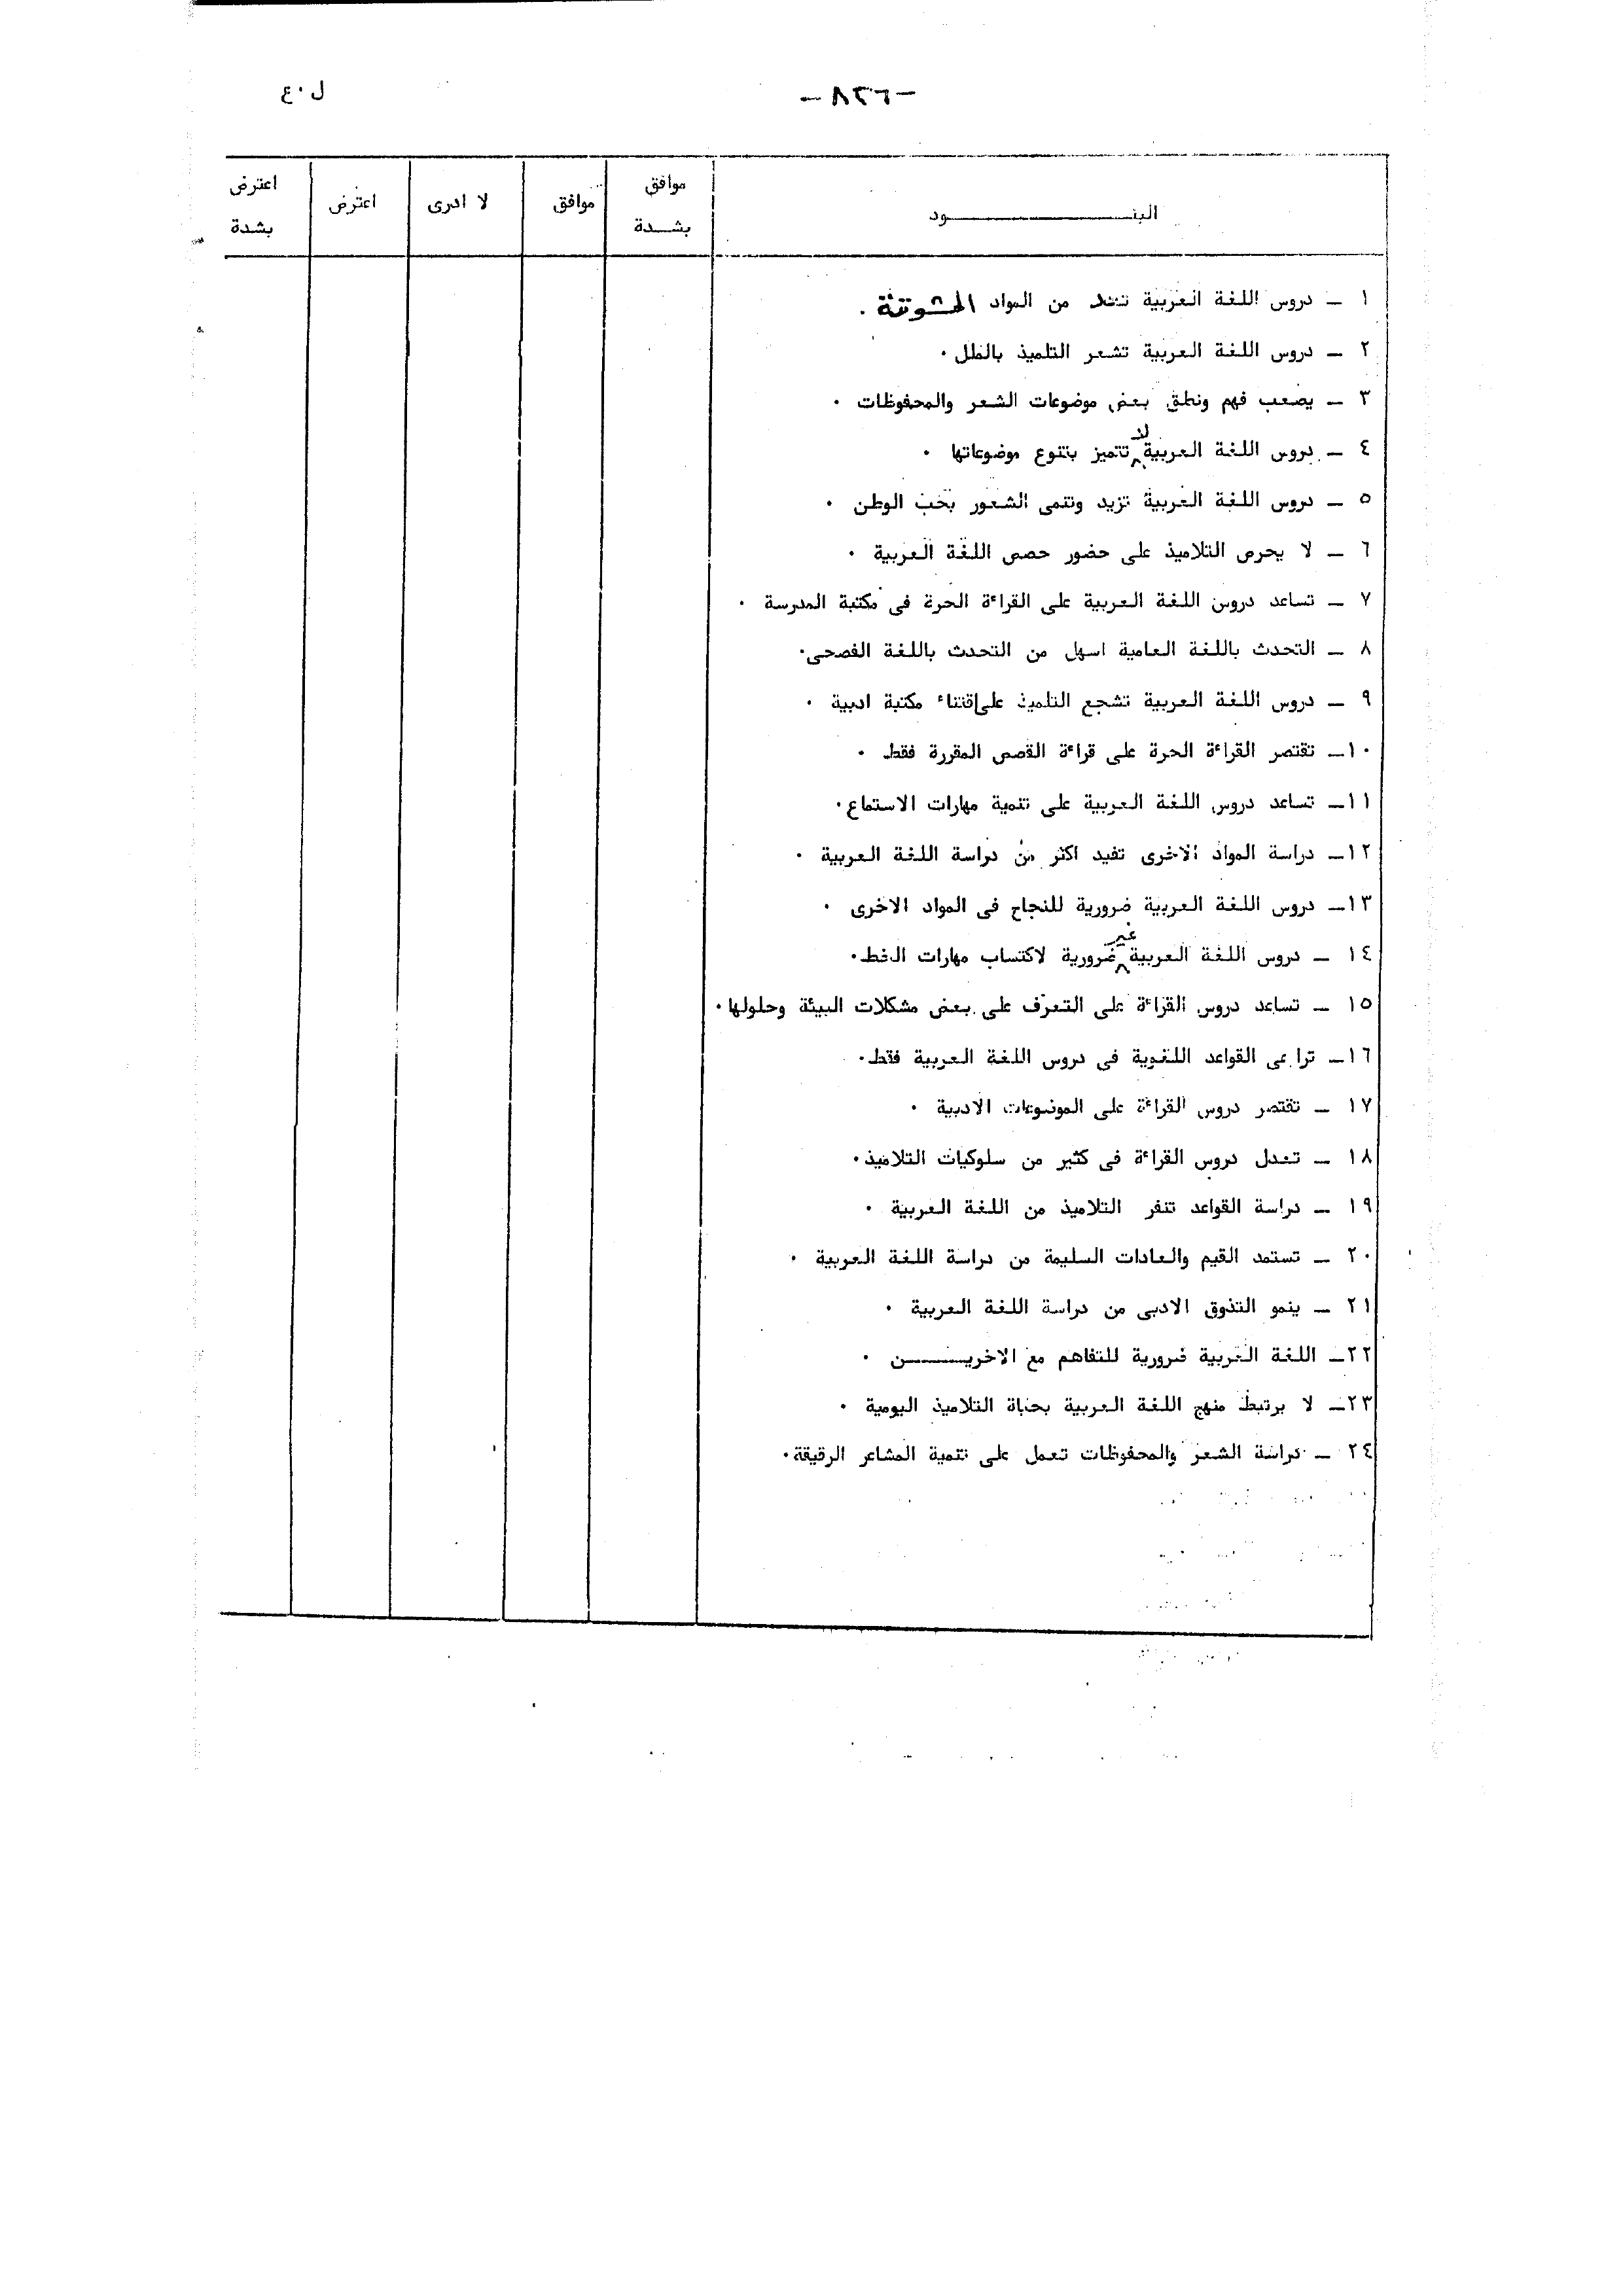 -٨٢٦-
ل٠ع
البنـــــــــود	موافق بشـدة	موافق	لا ادرى	اعترض	اعترض بشدة
١ ـ دروس اللغة العربية تعد من المواد المشوقة .
٢ ـ دروس اللغة العربية تشعر التلميذ بالملل .
٣ ـ يصعب فهم ونطق بعض موضوعات الشعر والمحفوظات .
٤ ـ دروس اللغة العربية لا تتميز بتنوع موضوعاتها .
٥ ـ دروس اللغة العربية تزيد وتنمى الشعور بحب الوطن .
٦ ـ لا يحرص التلاميذ على حضور حصص اللغة العربية .
٧ ـ تساعد دروس اللغة العربية على القراءة الحرة فى مكتبة المدرسة .
٨ ـ التحدث باللغة العامية اسهل من التحدث باللغة الفصحى.
٩ ـ دروس اللغة العربية تشجع التلميذ على اقتناء مكتبة ادبية .
١٠ـ تقتصر القراءة الحرة على قراءة القصص المقررة فقط .
١١ـ تساعد دروس اللغة العربية على تنمية مهارات الاستماع.
١٢ـ دراسة المواد الاخرى تفيد اكثر من دراسة اللغة العربية .
١٣ـ دروس اللغة العربية ضرورية للنجاح فى المواد الاخرى .
١٤ ـ دروس اللغة العربية غير ضرورية لاكتساب مهارات الخط.
١٥ ـ تساعد دروس القراءة على التعرف على بعض مشكلات البيئة وحلولها.
١٦ـ تراعى القواعد اللغوية فى دروس اللغة العربية فقط.
١٧ ـ تقتصر دروس القراءة على الموضوعات الادبية .
١٨ ـ تعدل دروس القراءة فى كثير من سلوكيات التلاميذ.
١٩ ـ دراسة القواعد تنفر التلاميذ من اللغة العربية .
٢٠ ـ تستمد القيم والعادات السليمة من دراسة اللغة العربية .
٢١ ـ ينمو التذوق الادبى من دراسة اللغة العربية .
٢٢ـ اللغة العربية ضرورية للتفاهم مع الاخريـــــن .
٢٣ـ لا يرتبط منهج اللغة العربية بحياة التلاميذ اليومية .
٢٤ ـ دراسة الشعر والمحفوظات تعمل على تنمية المشاعر الرقيقة.